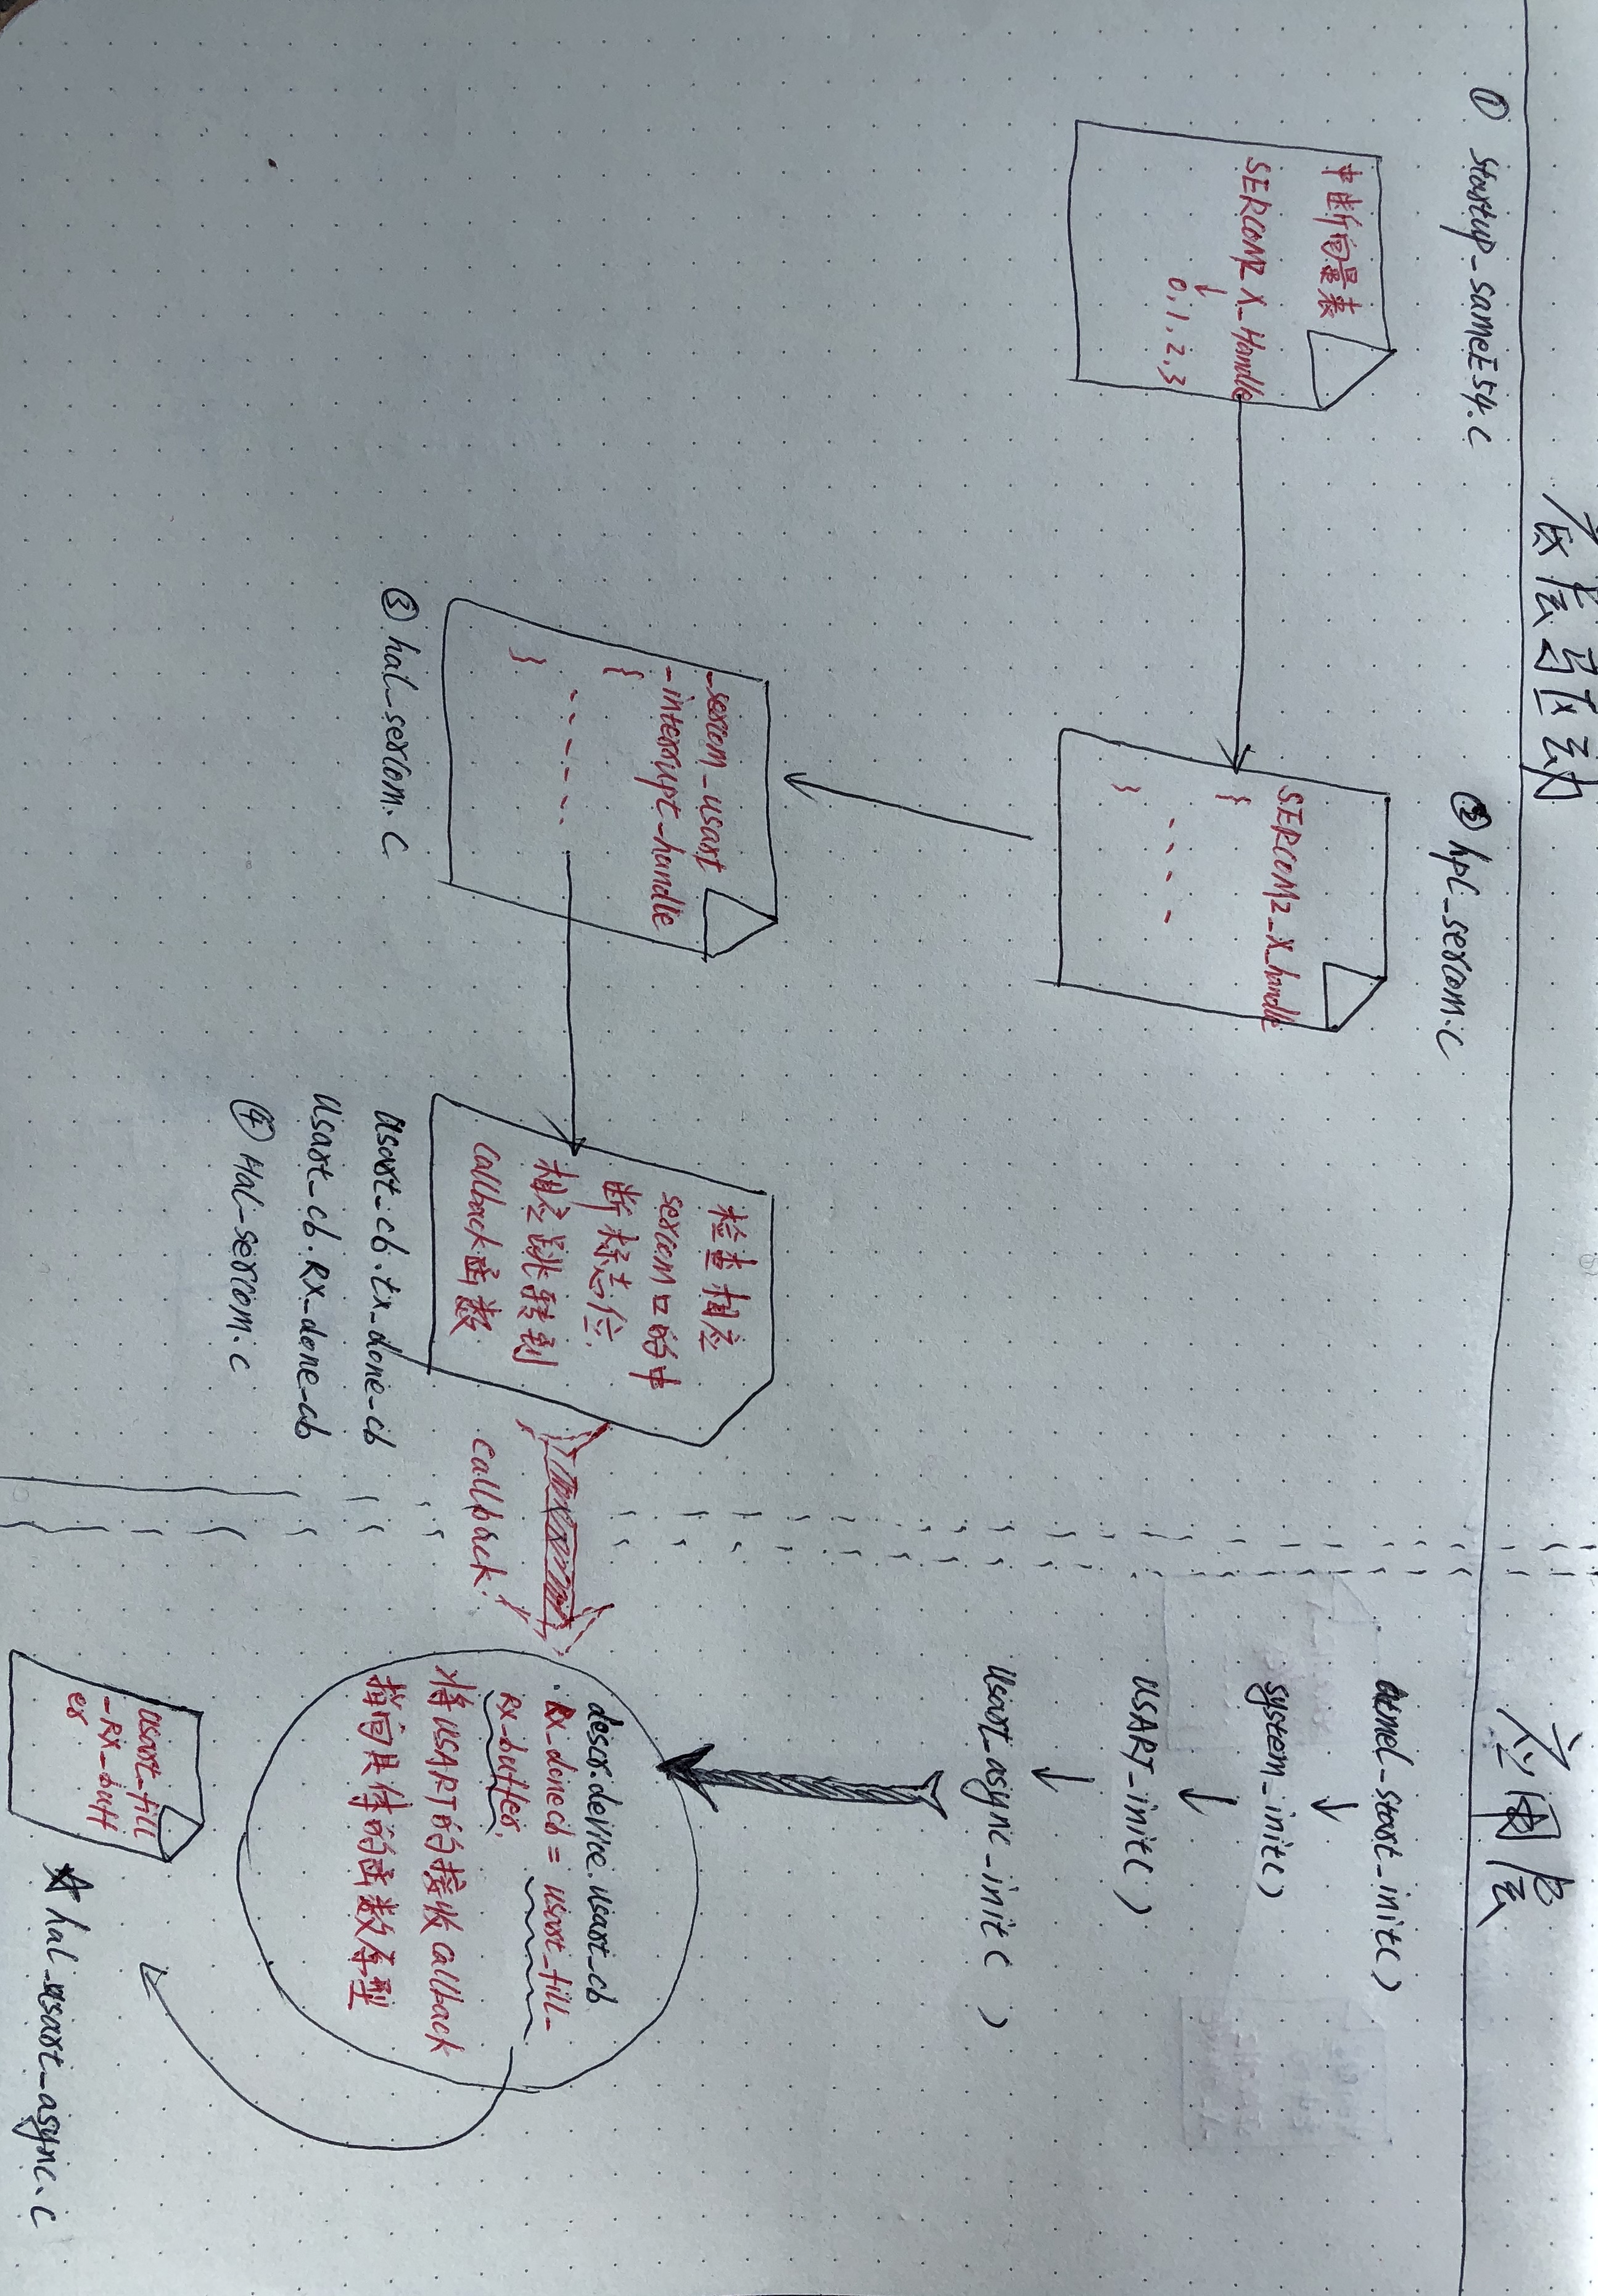 底层驱动
① startup_sameE54.c
中断向量表
SERCOM2_X_Handle
↓
0,1,2,3
② hpl_sercom.c
SERCOM2_X_handle
{
- - - -
}
_sercom_usart
_interrupt_handle
{
- - - - -
}
③ hal_sercom.c
检查相应
sercom口的中
断标志位.
相应跳转到
callback函数
usart_cb.tx_done_cb
usart_cb.RX_done_cb
④ Hal_sercom.c
callback.
应用层
atmel_start_init()
↓
system_init()
↓
USART_init()
↓
Usart_async_init( )
descr.device.usart_cb
.RX_done cb = usart_fill_
RX_buffer.
将USART的接收callback
指向具体的函数原型
usart_fill
_RX_buff
er
☆ hal_usart_async.c